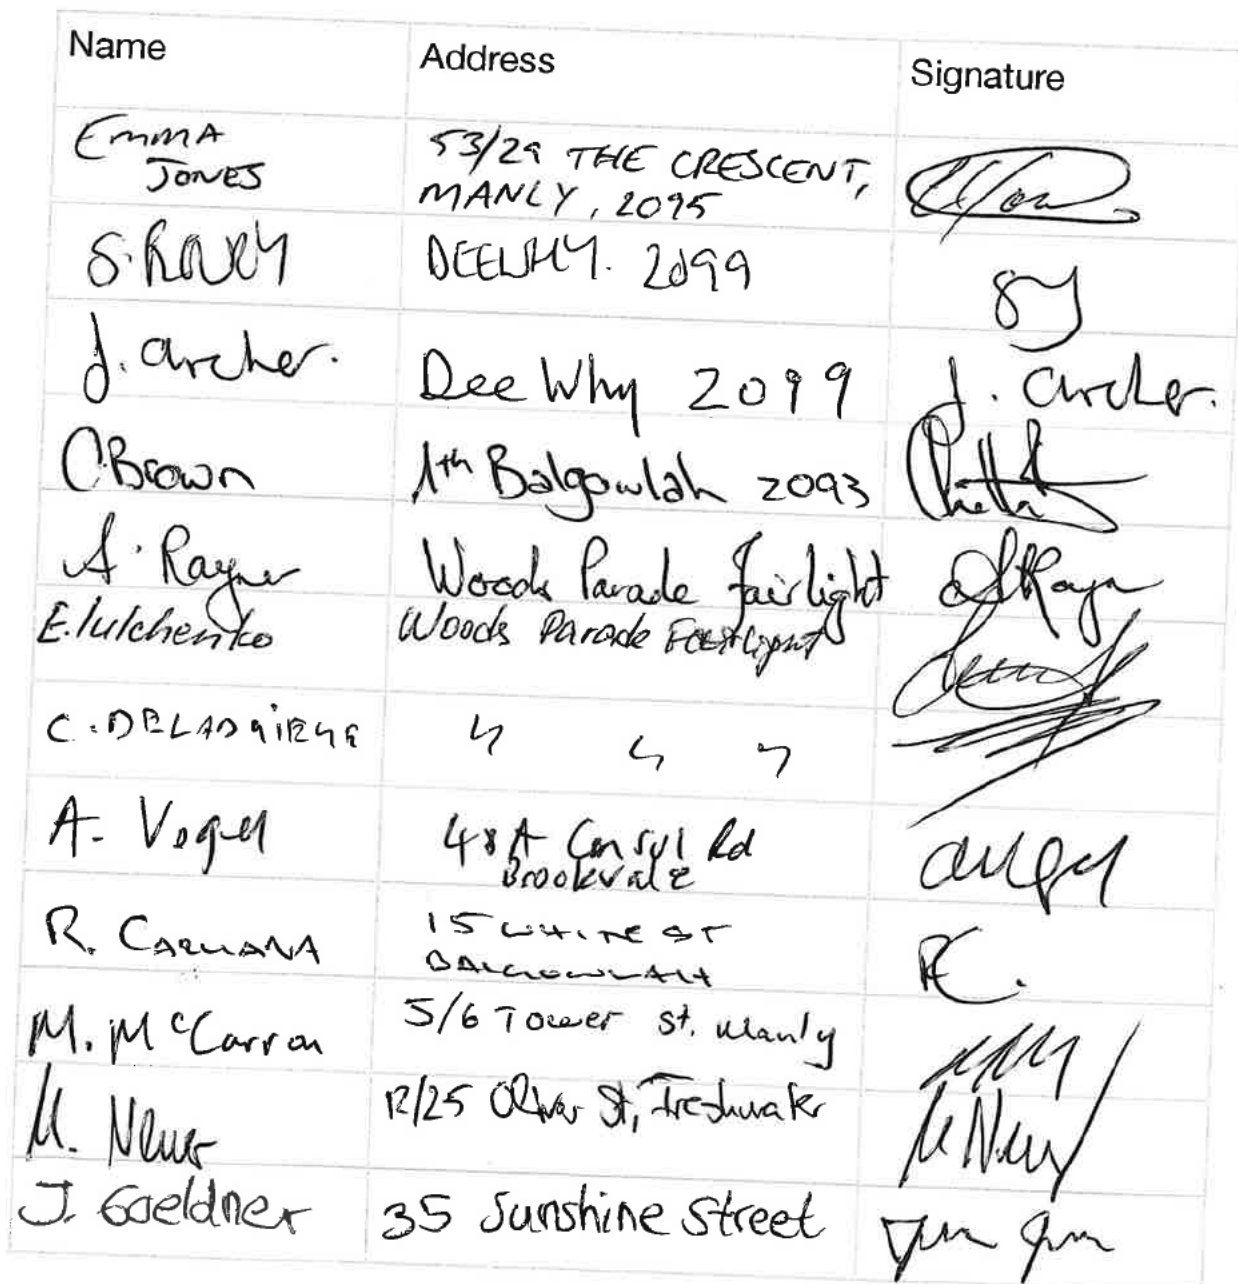 Name Address Signature
Emma
JONES
53/29 THE CRESCENT,
MANLY, 2095
S.
DEEWHY. 2099
J. archer.
Dee Why 2099
J. archer.
C.Brown
Nth Balgowlah 2093
A. Rayner
Woods Parade Fairlight
E.
Woods Parade Fairlight
A. Vogel
48A Consul Rd
Brookvale
R. CARUANA
15 WHITE ST
BALGOWLAH
RC.
M. McCarron
5/6 Tower St. Manly
M.
12/25 Oliver St, Freshwater
J. Goeldner
35 Sunshine Street